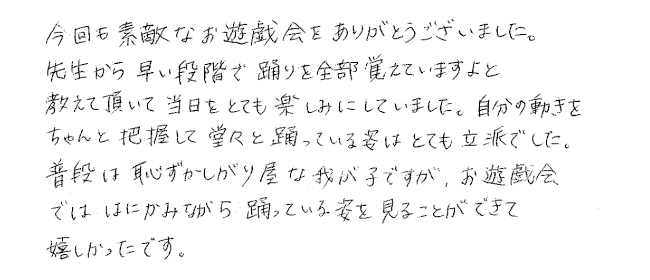 今回も素敵なお遊戯会をありがとうございました。
先生から早い段階で踊りを全部覚えていますよと
教えて頂いて当日をとても楽しみにしていました。自分の動きを
ちゃんと把握して堂々と踊っている姿はとても立派でした。
普段は恥ずかしがり屋な我が子ですが、お遊戯会
でははにかみながら踊っている姿を見ることができて
嬉しかったです。